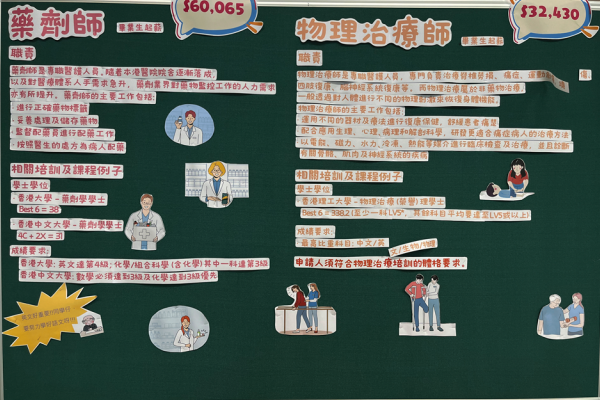 藥劑師
畢業生起薪
$60,065
職責
藥劑師是專職醫護人員，隨着本港醫院院舍逐漸落成，
以及對醫療體系人手需求急升，藥劑業界對藥物監控工作的人力需求
亦有所提升。藥劑師的主要工作包括：
· 進行正確藥物標籤
· 妥善處理及儲存藥物
· 監督配藥員進行配藥工作
· 按照醫生的處方為病人配藥
相關培訓及課程例子
學士學位：
· 香港大學 - 藥劑學學士
Best 6 = 38
· 香港中文大學 - 藥劑學學士
4C + 2X = 31
成績要求：
香港大學: 英文達第4級; 化學/組合科學 (含化學)其中一科達第3級
香港中文大學: 數學必須達到3級及化學達到3級優先
物理治療師
畢業生起薪
$32,430
職責
物理治療師是專職醫護人員，專門負責治療脊椎勞損、痛症、運動 傷、
四肢復康、腦神經系統復康等。而物理治療屬於非藥物治療，
一般透過對人體進行不同的物理刺激來恢復身體機能。
物理治療師的主要工作包括：
· 運用不同的器材及療法進行復康保健，舒緩患者痛楚
· 配合應用生理、心理、病理和解剖科學，研發更適合痛症病人的治療方法
· 以電能、磁力、水力、冷凍、熱能等媒介進行臨床檢查及治療，並且診斷
有關骨骼、肌肉及神經系統的疾病
相關培訓及課程例子
學士學位
· 香港理工大學 - 物理治療 (榮譽) 理學士
Best 6 = 338.2 (至少一科LV5*, 其餘科目平均要達至LV5或以上)
成績要求：
· 最高比重科目: 中文/英文/生物/物理
申請人須符合物理治療培訓的體格要求。